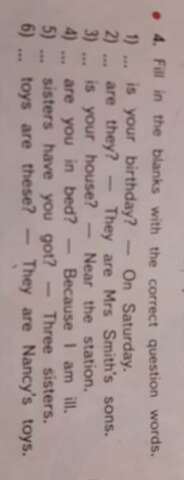 • 4. Fill in the blanks with the correct question words.
1) ... is your birthday? — On Saturday.
2) ... are they? — They are Mrs Smith's sons.
3) ... is your house? — Near the station.
4) ... are you in bed? — Because I am ill.
5) ... sisters have you got? — Three sisters.
6) ... toys are these? — They are Nancy's toys.